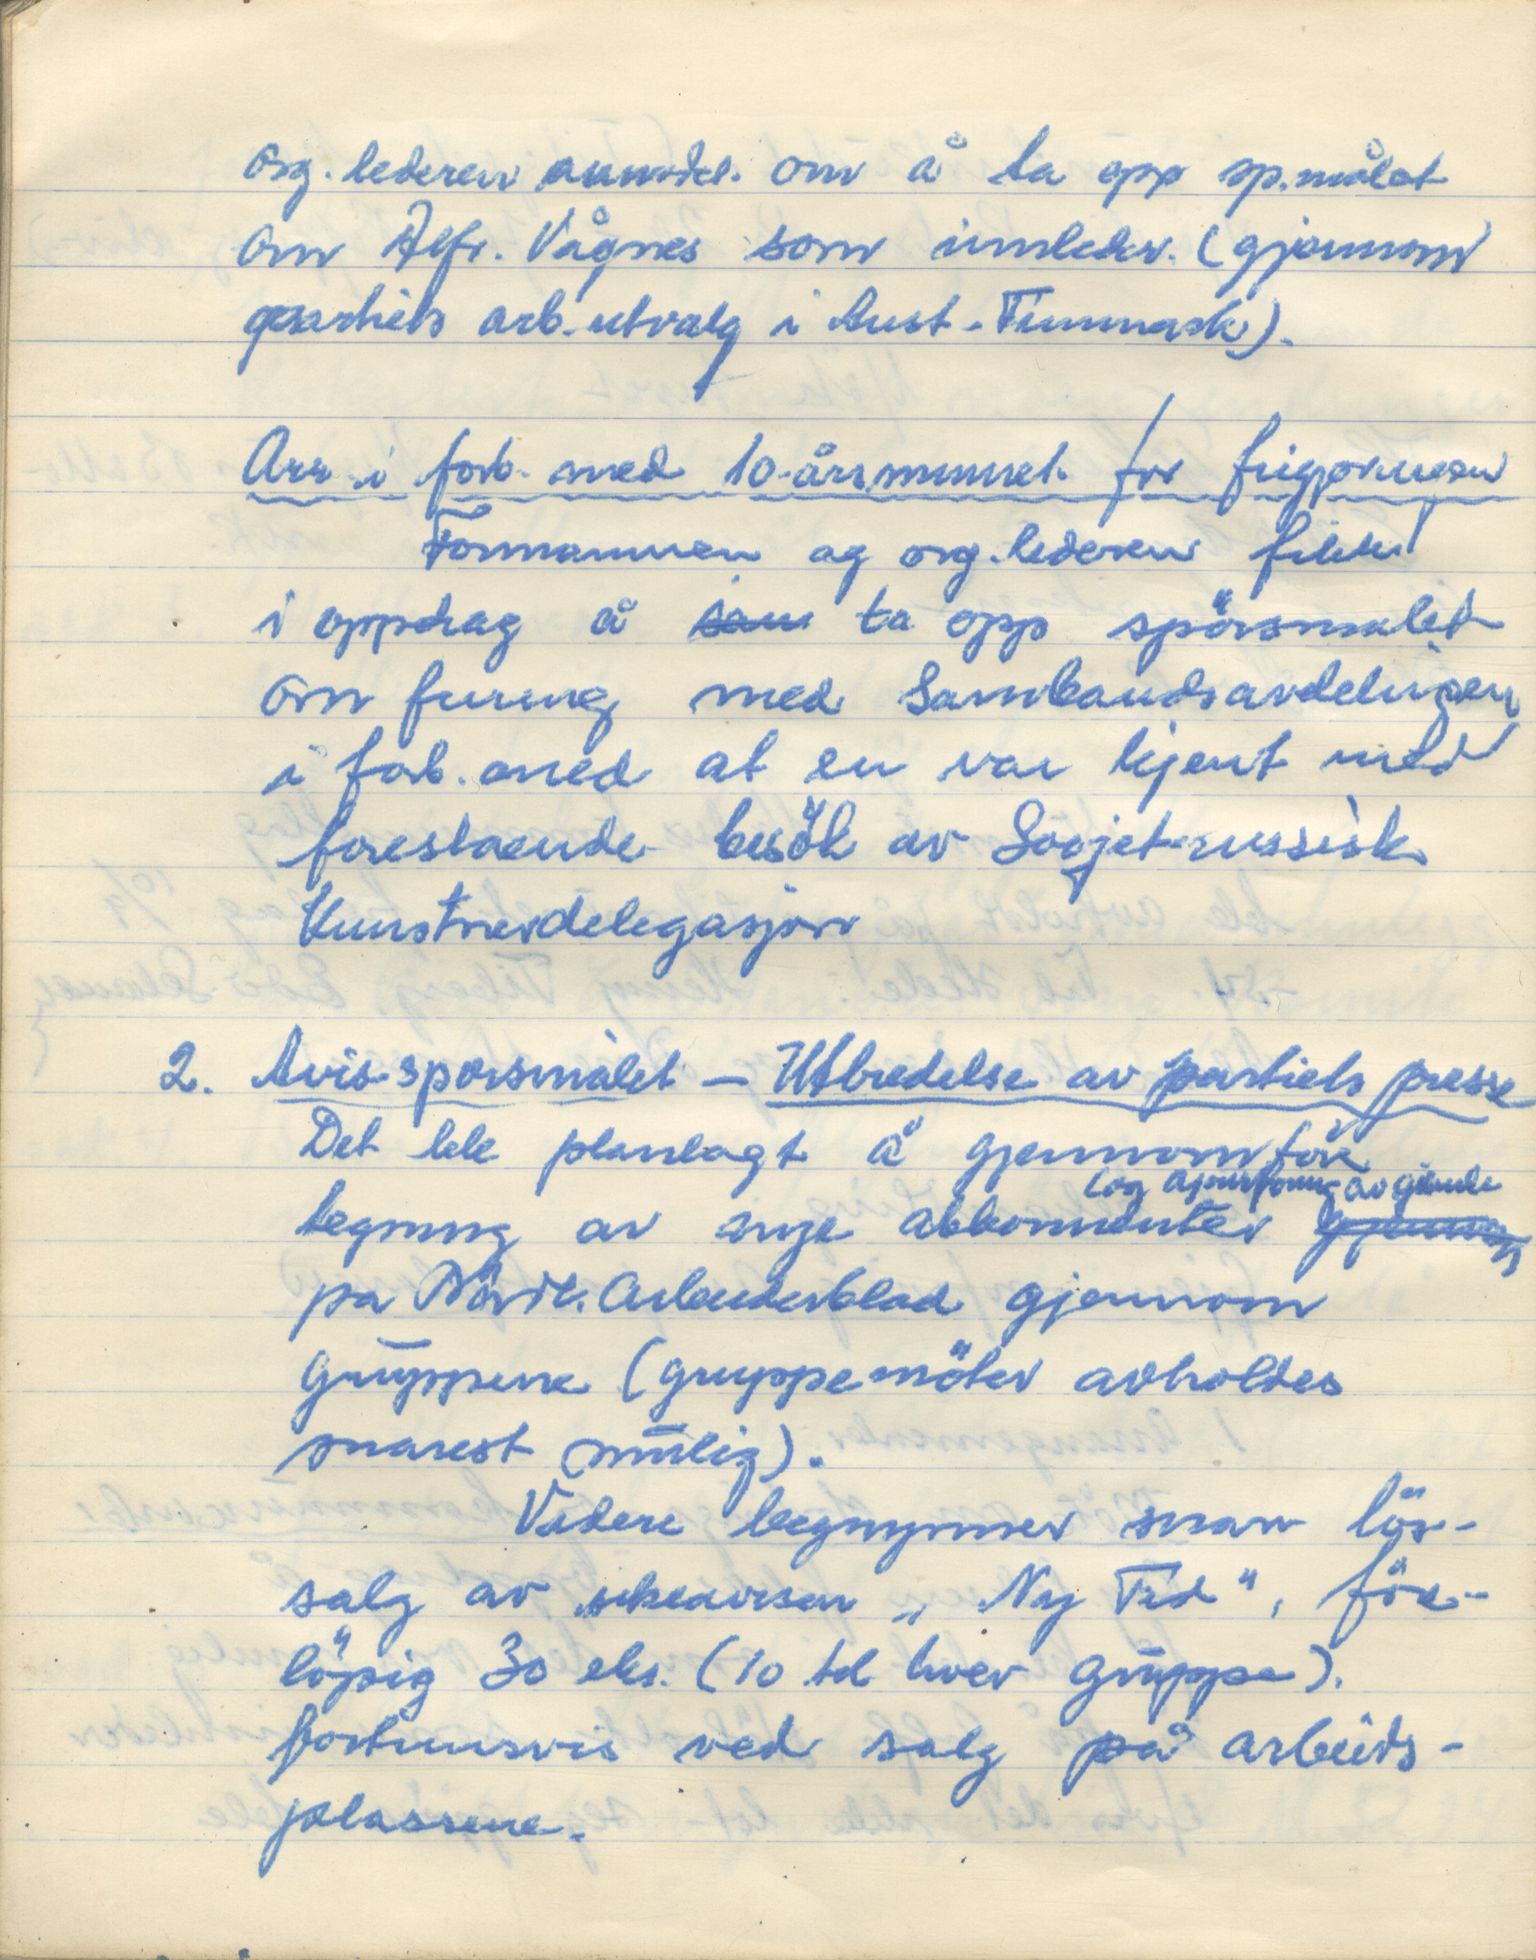 Org. lederen anmodet. om å ta opp sp.målet
om Alfr. Vågnes som innleder. (gjennom
partiets arb.utvalg i Aust-Finnmark).
Arr. i forb. med 10-årsminnet for frigjøringen
Formannen og org.lederen fikk
i oppdrag å sam ta opp spörsmalet
om furing med Sambandsavdelingen
i forb. med at en var kjent med
forestaende besök av Sovjet-russisk
Kunstnerdelegasjon
2. Avis-sporsmålet – Utbredelse av partiets presse
Det ble planlagt å gjennomföre
(og ajourföring av gjende
tegning av nye abbonnenter
pa Nordl. Arbeiderblad gjennom
gruppene (gruppemöter avholdes
snarest mulig).
Videre begynnes snar lös-
salg av ukeavisen „Ny Tid", före-
löpig 30 eks. (10 til hver gruppe).
fortrinsvis ved salg på arbeids-
plassene.